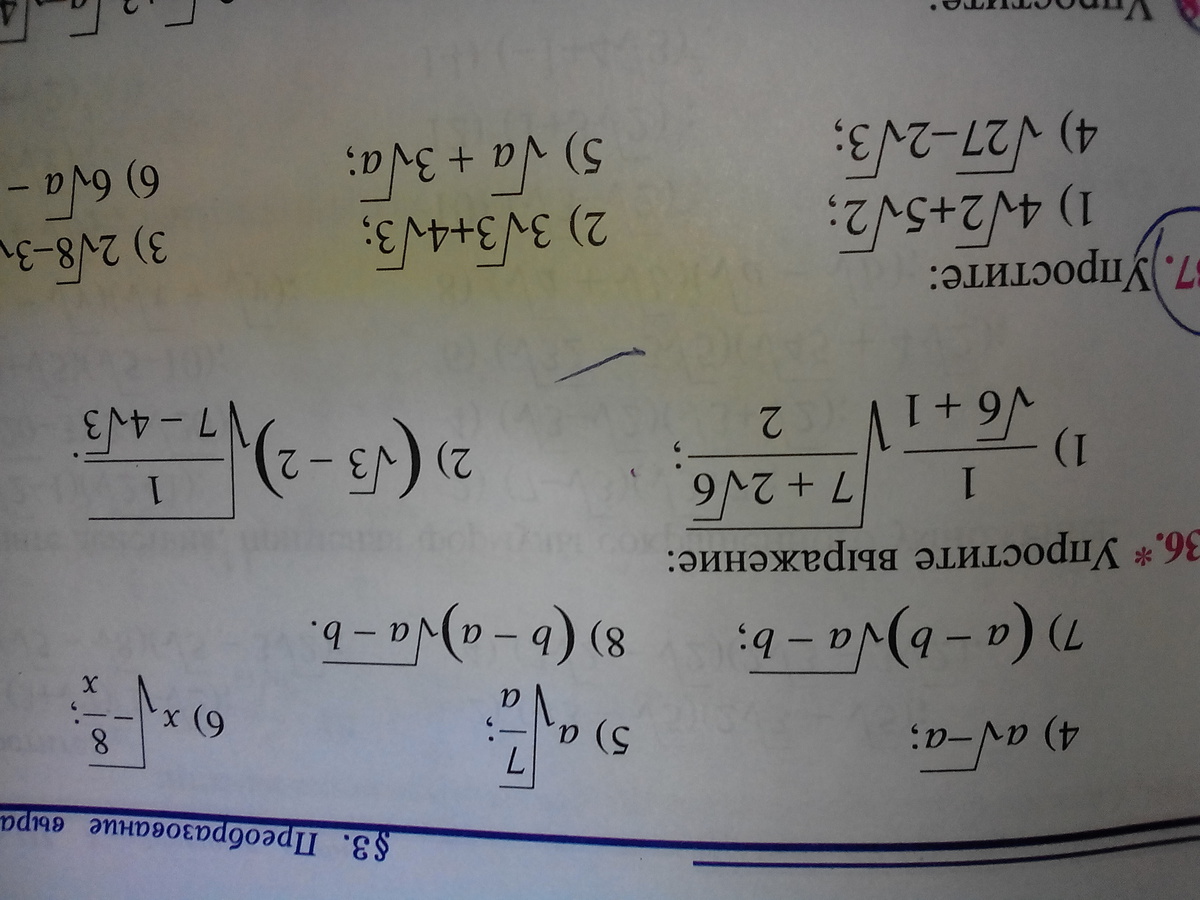 §3. Преобразование выра
4) a√−a; 5) a√(7/a); 6) x√(−8/x);
7) (a − b)√(a − b); 8) (b − a)√(a − b).
36.* Упростите выражение:
1) 1/(√6 + 1) √((7 + 2√6)/2); 2) (√3 − 2)√(1/(7 − 4√3)).
37. Упростите:
1) 4√2+5√2; 2) 3√3+4√3; 3) 2√8−3√
4) √27−2√3; 5) √a + 3√a; 6) 6√a −
Упростите: